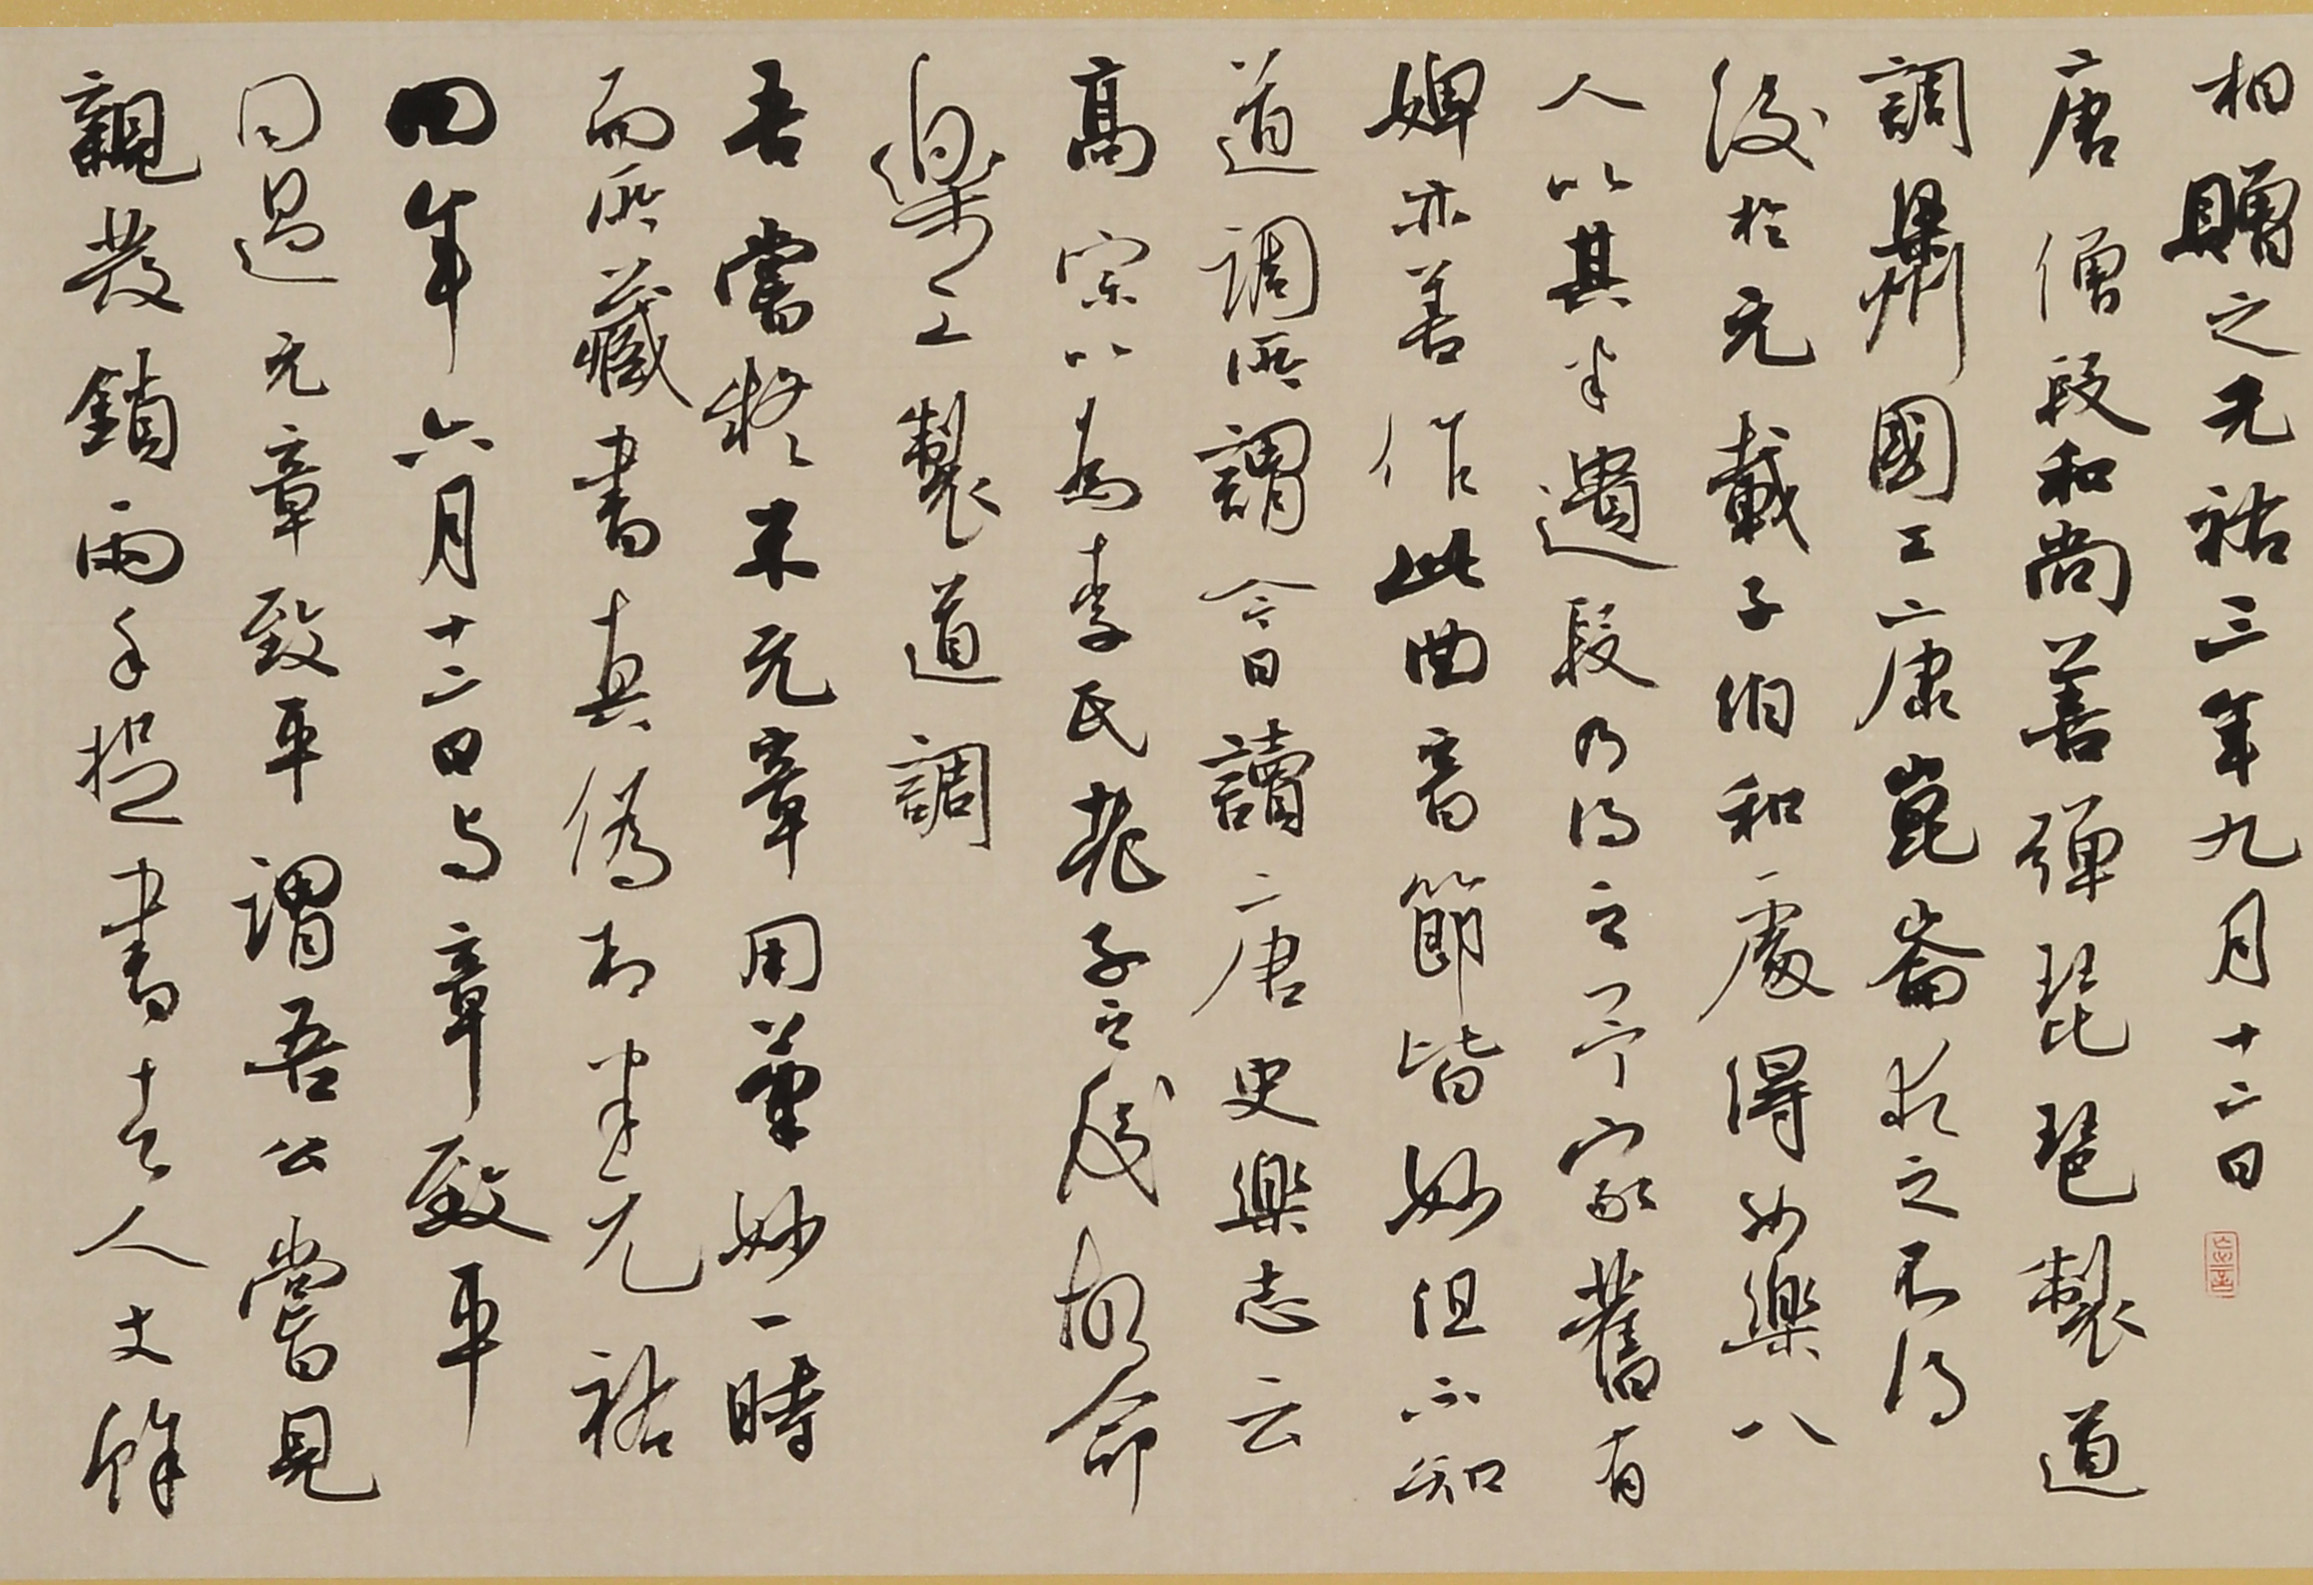 相贈之元祐三年九月十二日
唐僧段和尚善彈琵琶製道
調梁州國工康崑崙求之不得
後於元載子伯和處得女樂八
人以其半遺段乃得之予家舊有
婢亦善作此曲音節皆妙但不知
道調所謂今日讀唐史樂志云
高宗以為李氏老子之後故命
樂工製道調
吾嘗疑米元章用筆妙一時
而所藏書真偽相半元祐
四年六月十二日与章致平
同過元章致平謂吾公嘗見
親發鎖兩手捉書去人丈餘